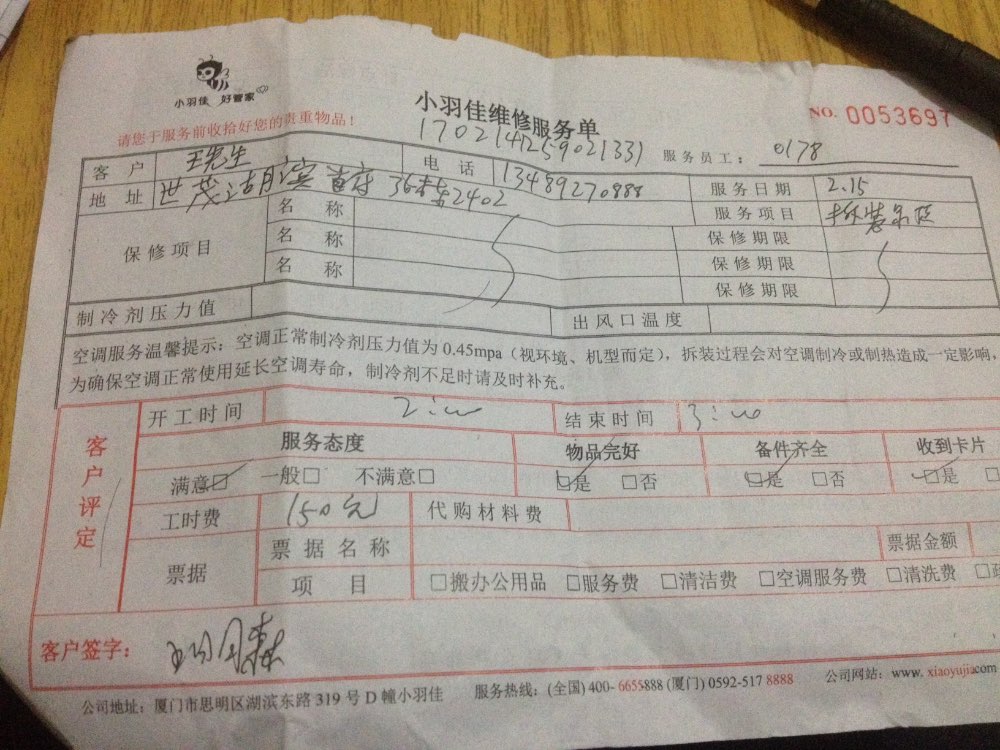 小羽佳 好管家
小羽佳维修服务单
NO. 0053697
请您于服务前收拾好您的贵重物品！
170214259021331
服务员工： 0178
客户 王先生 电话 13489270888 服务日期 2.15
地址 世茂湖滨首府 36栋2402 服务项目
保修项目 名称 保修期限
名称 保修期限
名称 保修期限
制冷剂压力值 出风口温度
空调服务温馨提示：空调正常制冷剂压力值为0.45mpa（视环境、机型而定），拆装过程会对空调制冷或制热造成一定影响，
为确保空调正常使用延长空调寿命，制冷剂不足时请及时补充。
客户评定
开工时间 2:00 结束时间 3:00
服务态度 物品完好 备件齐全 收到卡片
满意☑ 一般□ 不满意□ ☑是 □否 ☑是 □否 ☑是 □
工时费 150元 代购材料费
票据 票据名称 票据金额
项目 □搬办公用品 □服务费 □清洁费 □空调服务费 □清洗费 □
客户签字：
公司地址：厦门市思明区湖滨东路319号D幢小羽佳 服务热线：(全国) 400-6655888 (厦门) 0592-517 8888 公司网站：www.xiaoyujia.com